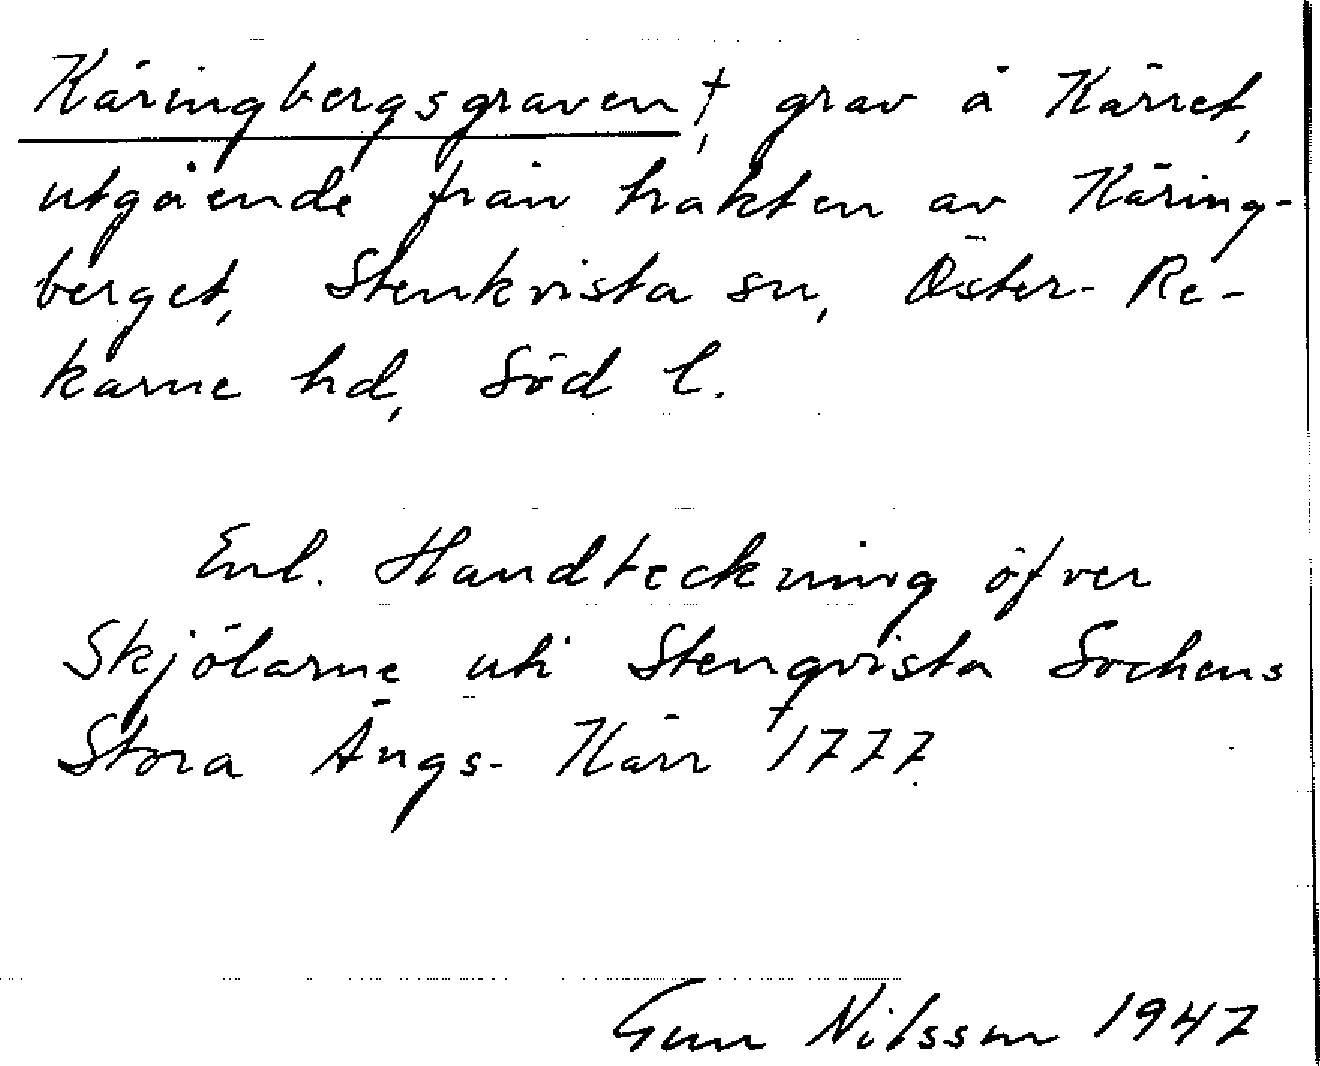 Käringbergsgraven†, grav å Kärret,
utgående från trakten av Käring-
berget, Stenkvista sn, Öster- Re-
karne hd, Söd l.
Enl. Handteckning öfver
Skjölarne uti Stenqvista Sochens
Stora Ängs- Kärr 1777.
Gun Nilsson 1947